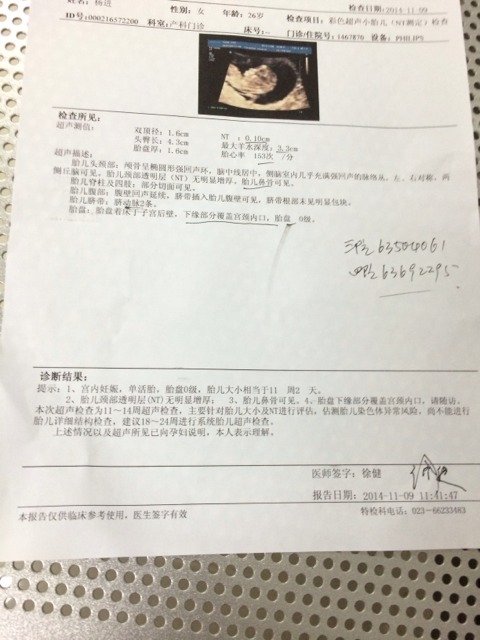 姓名：杨进 性别：女 年龄：26岁 检查日期：2014-11-09
ID号：000216572200 科室：产科门诊 床号：-- 检查项目：彩色超声小胎儿（NT测定）检查
门诊/住院号：1467870 设备：PHILIPS
检查所见：
超声测值：
双顶径：1.6cm NT ：0.10cm
头臀长：4.3cm 最大羊水深度：3.3cm
胎盘厚：1.6cm 胎心率 153次 /分
超声描述：
胎儿头颈部：颅骨呈椭圆形强回声环，脑中线居中，侧脑室内几乎充满强回声的脉络丛，左、右对称，两
侧丘脑可见，胎儿颈部透明层（NT）无明显增厚，胎儿鼻骨可见。
胎儿脊柱及四肢：部分切面可见。
胎儿腹部：腹壁回声延续，脐带插入胎儿腹壁可见，脐带根部未见明显包块。
胎儿脐带：脐动脉2条。
胎盘：胎盘着床于子宫后壁，下缘部分覆盖宫颈内口，胎盘 0级。
63504061
63692295
诊断结果：
提示：1、宫内妊娠，单活胎，胎盘0级，胎儿大小相当于11 周2 天。
2、胎儿颈部透明层(NT)无明显增厚； 3、胎儿鼻骨可见。4、胎盘下缘部分覆盖宫颈内口，请随访。
本次超声检查为11～14周超声检查，主要针对胎儿大小及NT进行评估，估测胎儿染色体异常风险，尚不能进行
胎儿详细结构检查，建议18～24周进行系统胎儿超声检查。
上述情况以及超声所见已向孕妇说明，本人表示理解。
医师签字：徐健
报告日期：2014-11-09 11:41:47
本报告仅供临床参考使用，医生签字有效 特检科电话：023-66233483